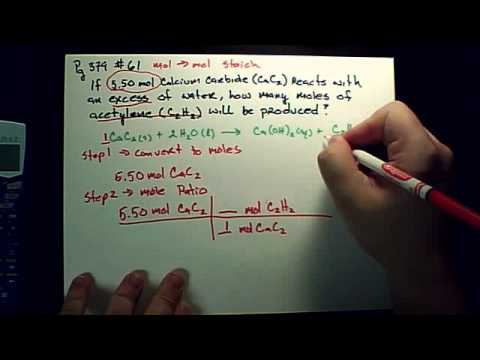 Pg 379 #61 mol → mol stoich
If 5.50 mol Calcium Carbide (CaC₂) Reacts with
an excess of water, how many moles of
acetylene (C₂H₂) will be produced?
1 CaC₂(s) + 2 H₂O(l) → Ca(OH)₂(aq) + C₂H
Step 1 → convert to moles
5.50 mol CaC₂
Step 2 → mole Ratio
5.50 mol CaC₂ | __ mol C₂H₂
1 mol CaC₂